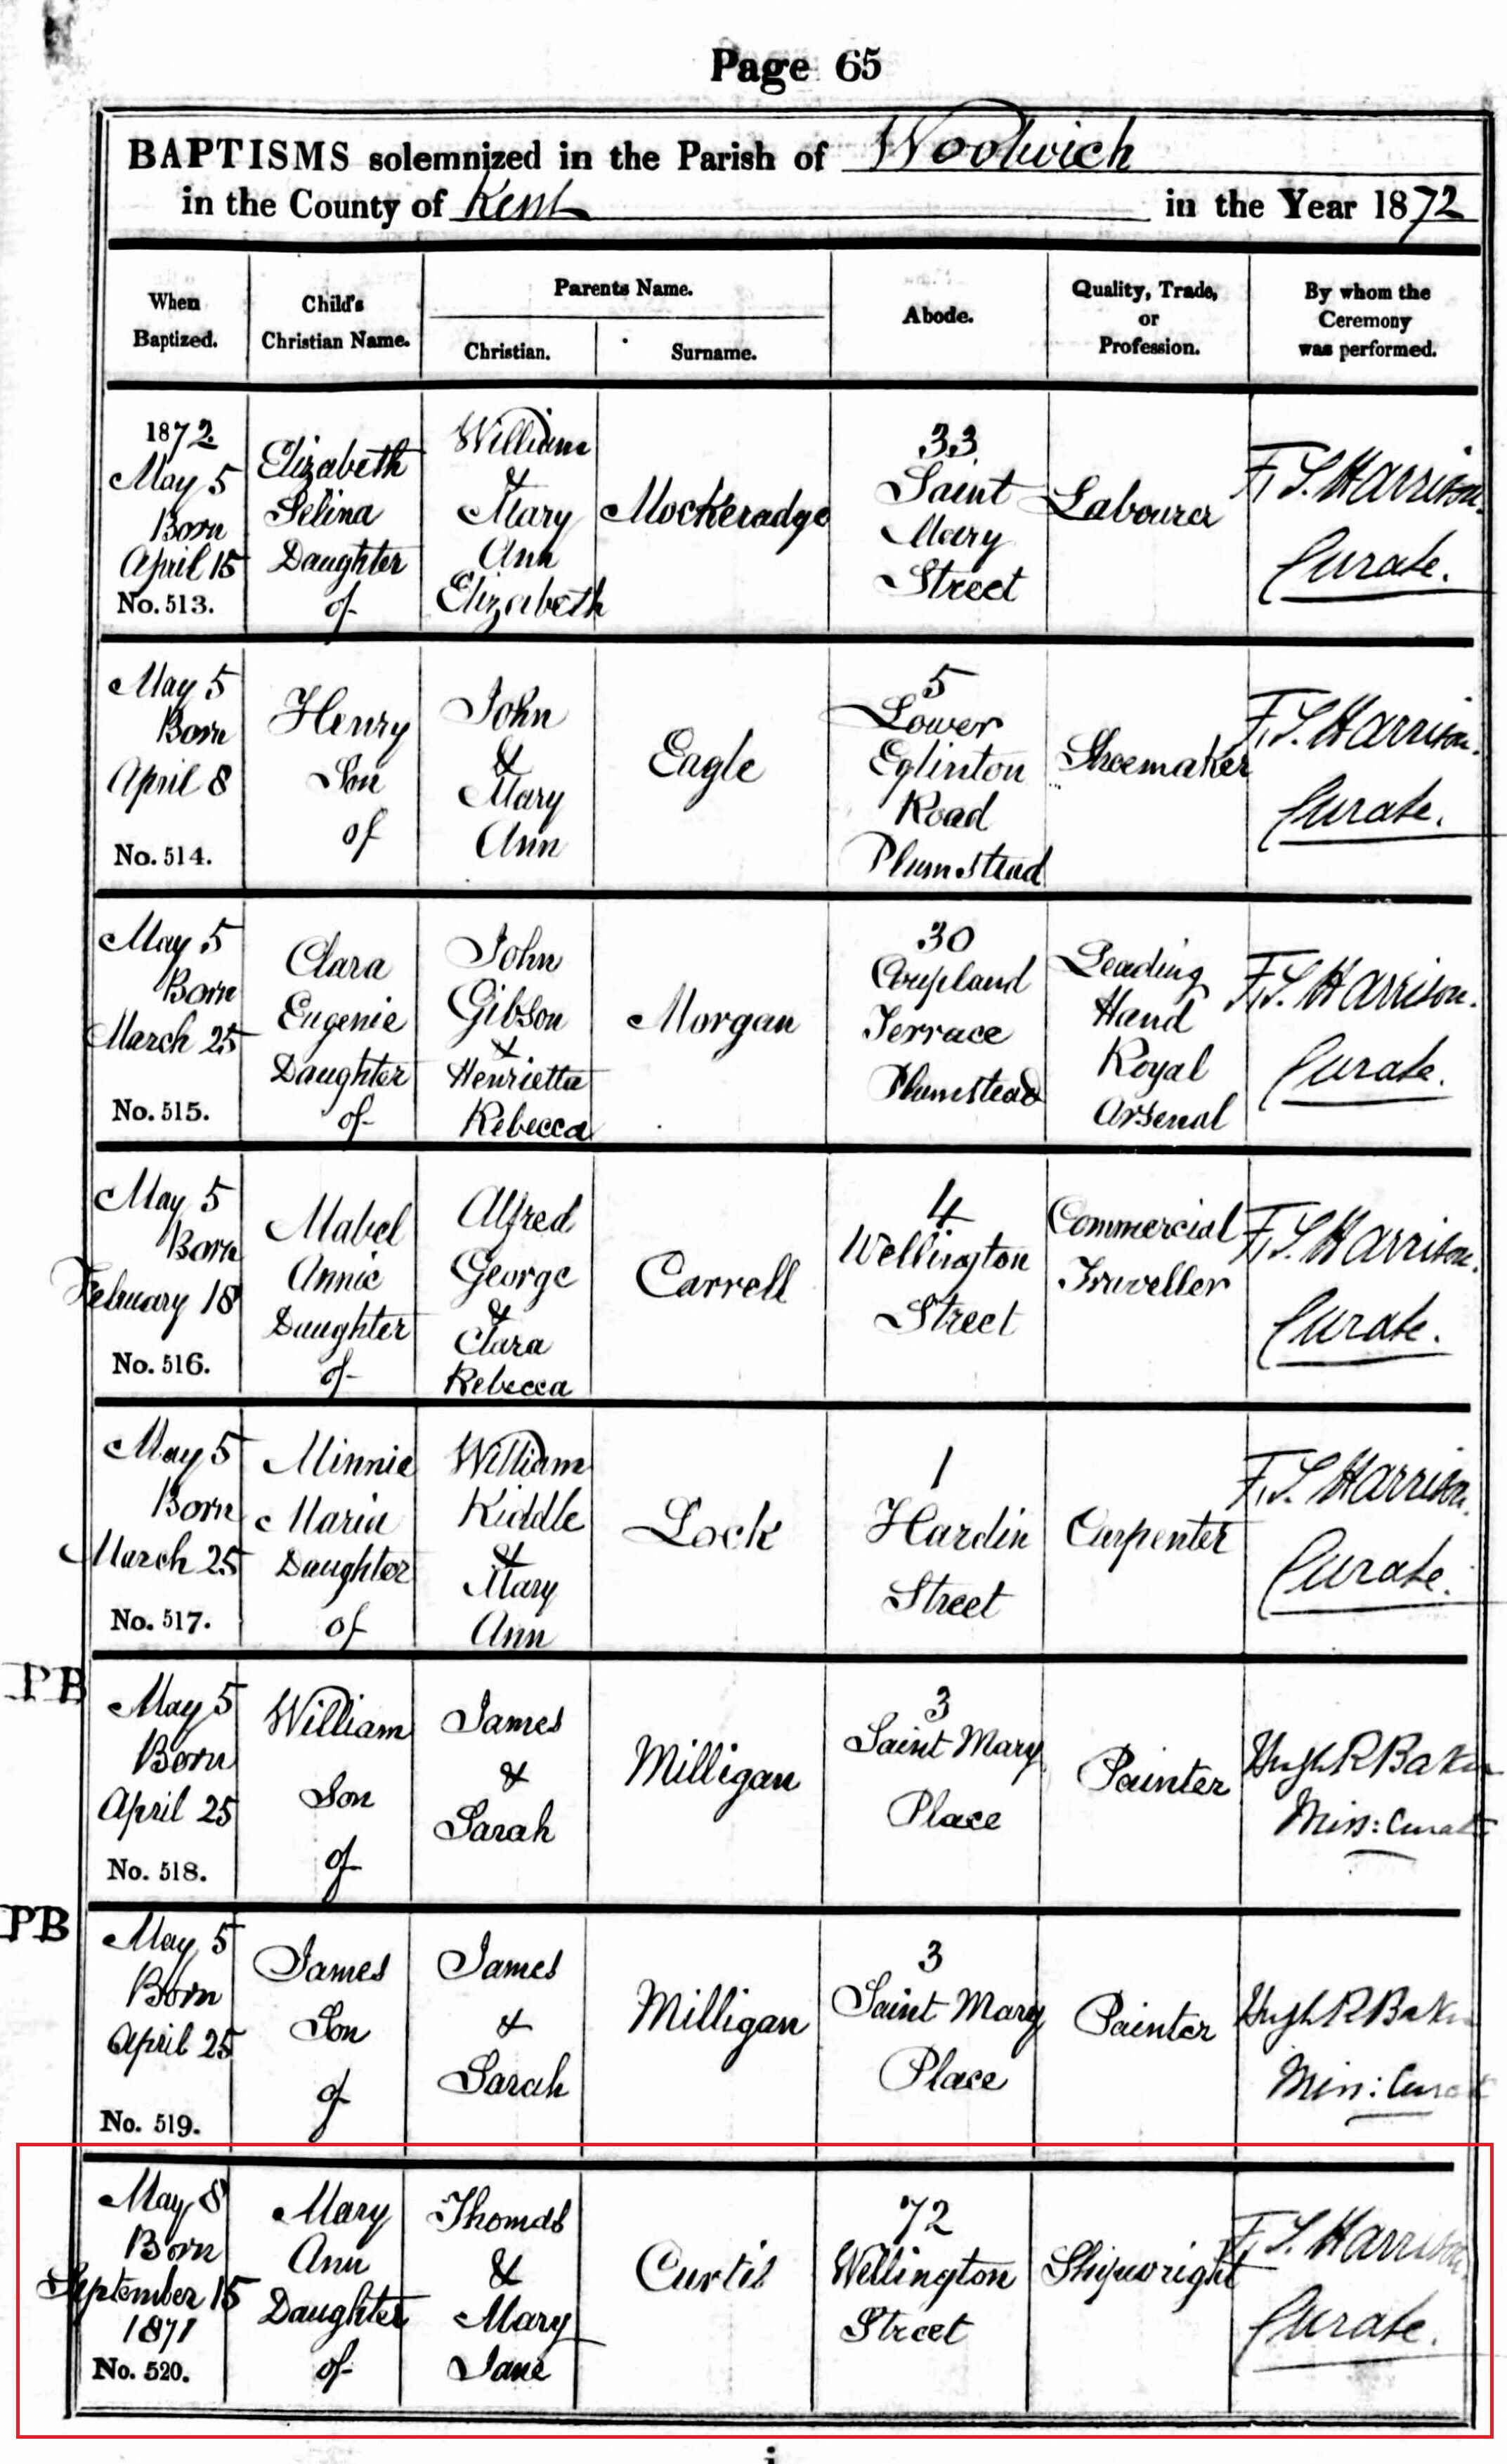 Page 65
BAPTISMS solemnized in the Parish of Woolwich
in the County of Kent in the Year 1872
When Baptized.
Child's Christian Name.
Parents Name.
Christian.
Surname.
Abode.
Quality, Trade, or Profession.
By whom the Ceremony was performed.
1872.
May 5
Born
April 15
No. 513.
Elizabeth
Selina
Daughter
of
William
&
Mary
Ann
Elizabeth
Mockeradge
33
Saint
Mary
Street
Labourer
F. S. Harrison.
Curate.
May 5
Born
April 8
No. 514.
Henry
Son
of
John
&
Mary
Ann
Eagle
5
Lower
Eglinton
Road
Plumstead
Shoemaker
F. S. Harrison.
Curate.
May 5
Born
March 25
No. 515.
Clara
Eugenie
Daughter
of
John
Gibson
&
Henrietta
Rebecca
Morgan
30
Coupland
Terrace
Plumstead
Leading
Hand
Royal
Arsenal
F. S. Harrison.
Curate.
May 5
Born
February 18
No. 516.
Mabel
Annie
Daughter
of
Alfred
George
&
Clara
Rebecca
Carrell
4
Wellington
Street
Commercial
Traveller
F. S. Harrison.
Curate.
May 5
Born
March 25
No. 517.
Minnie
Maria
Daughter
of
William
Kiddle
&
Mary
Ann
Lock
1
Hardin
Street
Carpenter
F. S. Harrison.
Curate.
PB
May 5
Born
April 25
No. 518.
William
Son
of
James
&
Sarah
Milligan
3
Saint Mary
Place
Painter
Hugh R Baker
Miss: Curate
PB
May 5
Born
April 25
No. 519.
James
Son
of
James
&
Sarah
Milligan
3
Saint Mary
Place
Painter
Hugh R Baker
Miss: Curate
May 8
Born
September 15
1871
No. 520.
Mary
Ann
Daughter
of
Thomas
&
Mary
Jane
Curtis
72
Wellington
Street
Shipwright
F. S. Harrison.
Curate.